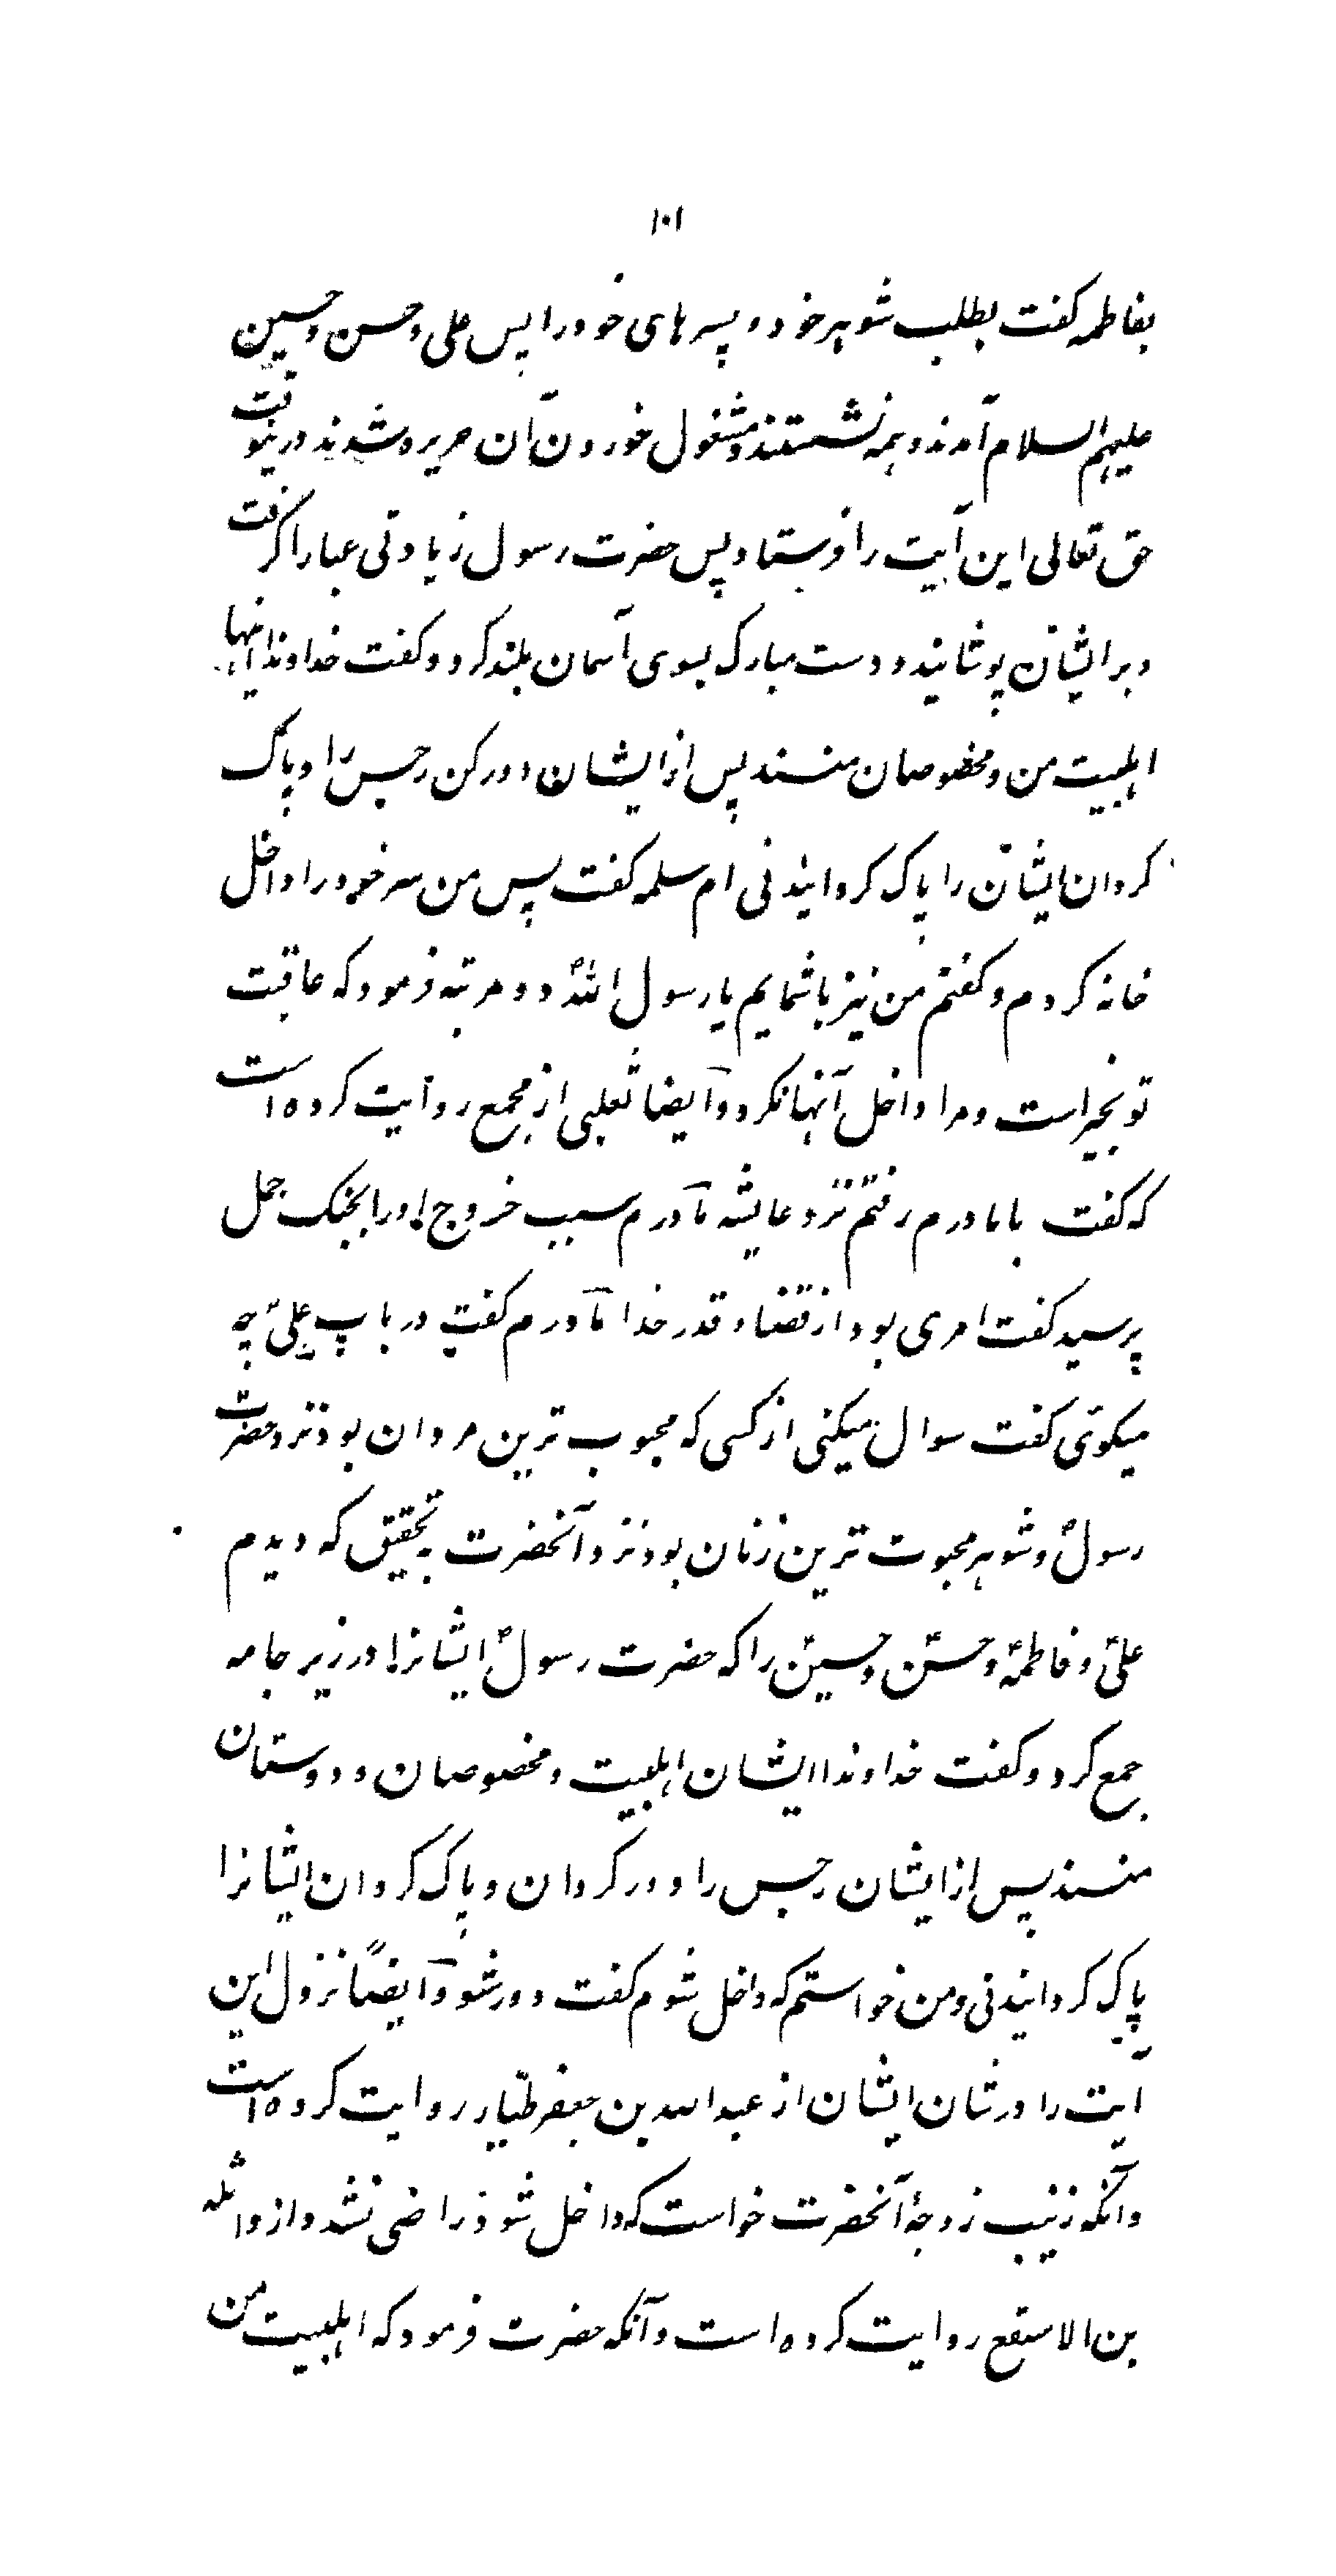 ۱۰۱
بفاطمه گفت بطلب شوهر خود و پسرهای خود را پس علی و حسن و حسین
علیهم السلام آمدند و همه نشستند و مشغول خوردن آن حریره شدند درینوقت
حق تعالی این آیت را فرستاد پس حضرت رسول زیادتی عبا را گرفت
و بر ایشان پوشانید و دست مبارک بسوی آسمان بلند کرد و گفت خداوندا اینها
اهلبیت من و مخصوصان منند پس از ایشان دور کن رجس را و پاک
گردان ایشان را پاک گردانیدنی ام سلمه گفت پس من سر خود را داخل
خانه کردم و گفتم من نیز با شمایم یا رسول اللهؐ دو مرتبه فرمود که عاقبت
تو بخیر است و مرا داخل آنها نکرد و آیضا ثعلبی از مجمع روایت کرده است
که گفت با مادرم رفتم نزد عایشه مادرم سبب خروج او را بجنگ جمل
پرسید گفت امری بود از قضا و قدر خدا مادرم گفت در باب علیؑ چه
میکوئی گفت سوال میکنی از کسی که محبوب ترین مردان بود نزد حضرت
رسولؐ و شوهر محبوت ترین زنان بود نزد آنحضرت به تحقیق که دیدم
علیؑ و فاطمهؑ و حسنؑ و حسینؑ را که حضرت رسولؐ ایشانرا در زیر جامه
جمع کرد و گفت خداوندا ایشان اهلبیت و مخصوصان و دوستان
منند پس از ایشان رجس را دور گردان و پاک گردان ایشانرا
پاک گردانیدنی و من خواستم که داخل شوم گفت دور شو و آیضاً نزول این
آیت را در شان ایشان از عبدالله بن جعفر طیّار روایت کرده است
و آنکه زینب زوجهٔ آنحضرت خواست که داخل شود راضی نشد و از واثله
بن الاسقع روایت کرده است و آنکه حضرت فرمود که اهلبیت من